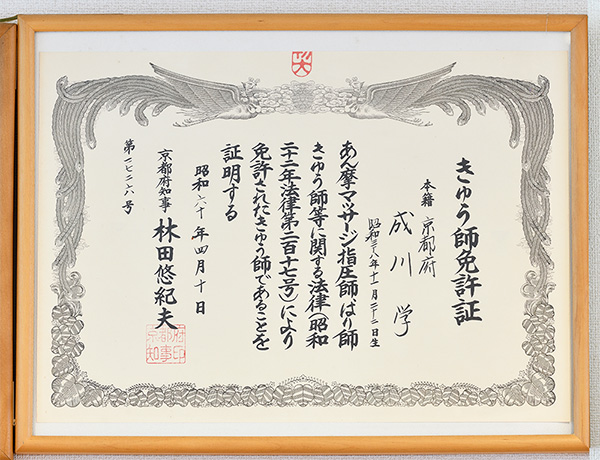 きゅう師免許証
本籍 京都府
成川 学
昭和三十八年十一月二十二日生
あん摩マツサージ指圧師、はり師
きゆう師等に関する法律(昭和
二十二年法律第二百十七号)により
免許されたきゆう師であることを
証明する
昭和六十年四月十日
京都府知事 林田悠紀夫
第一七二六号